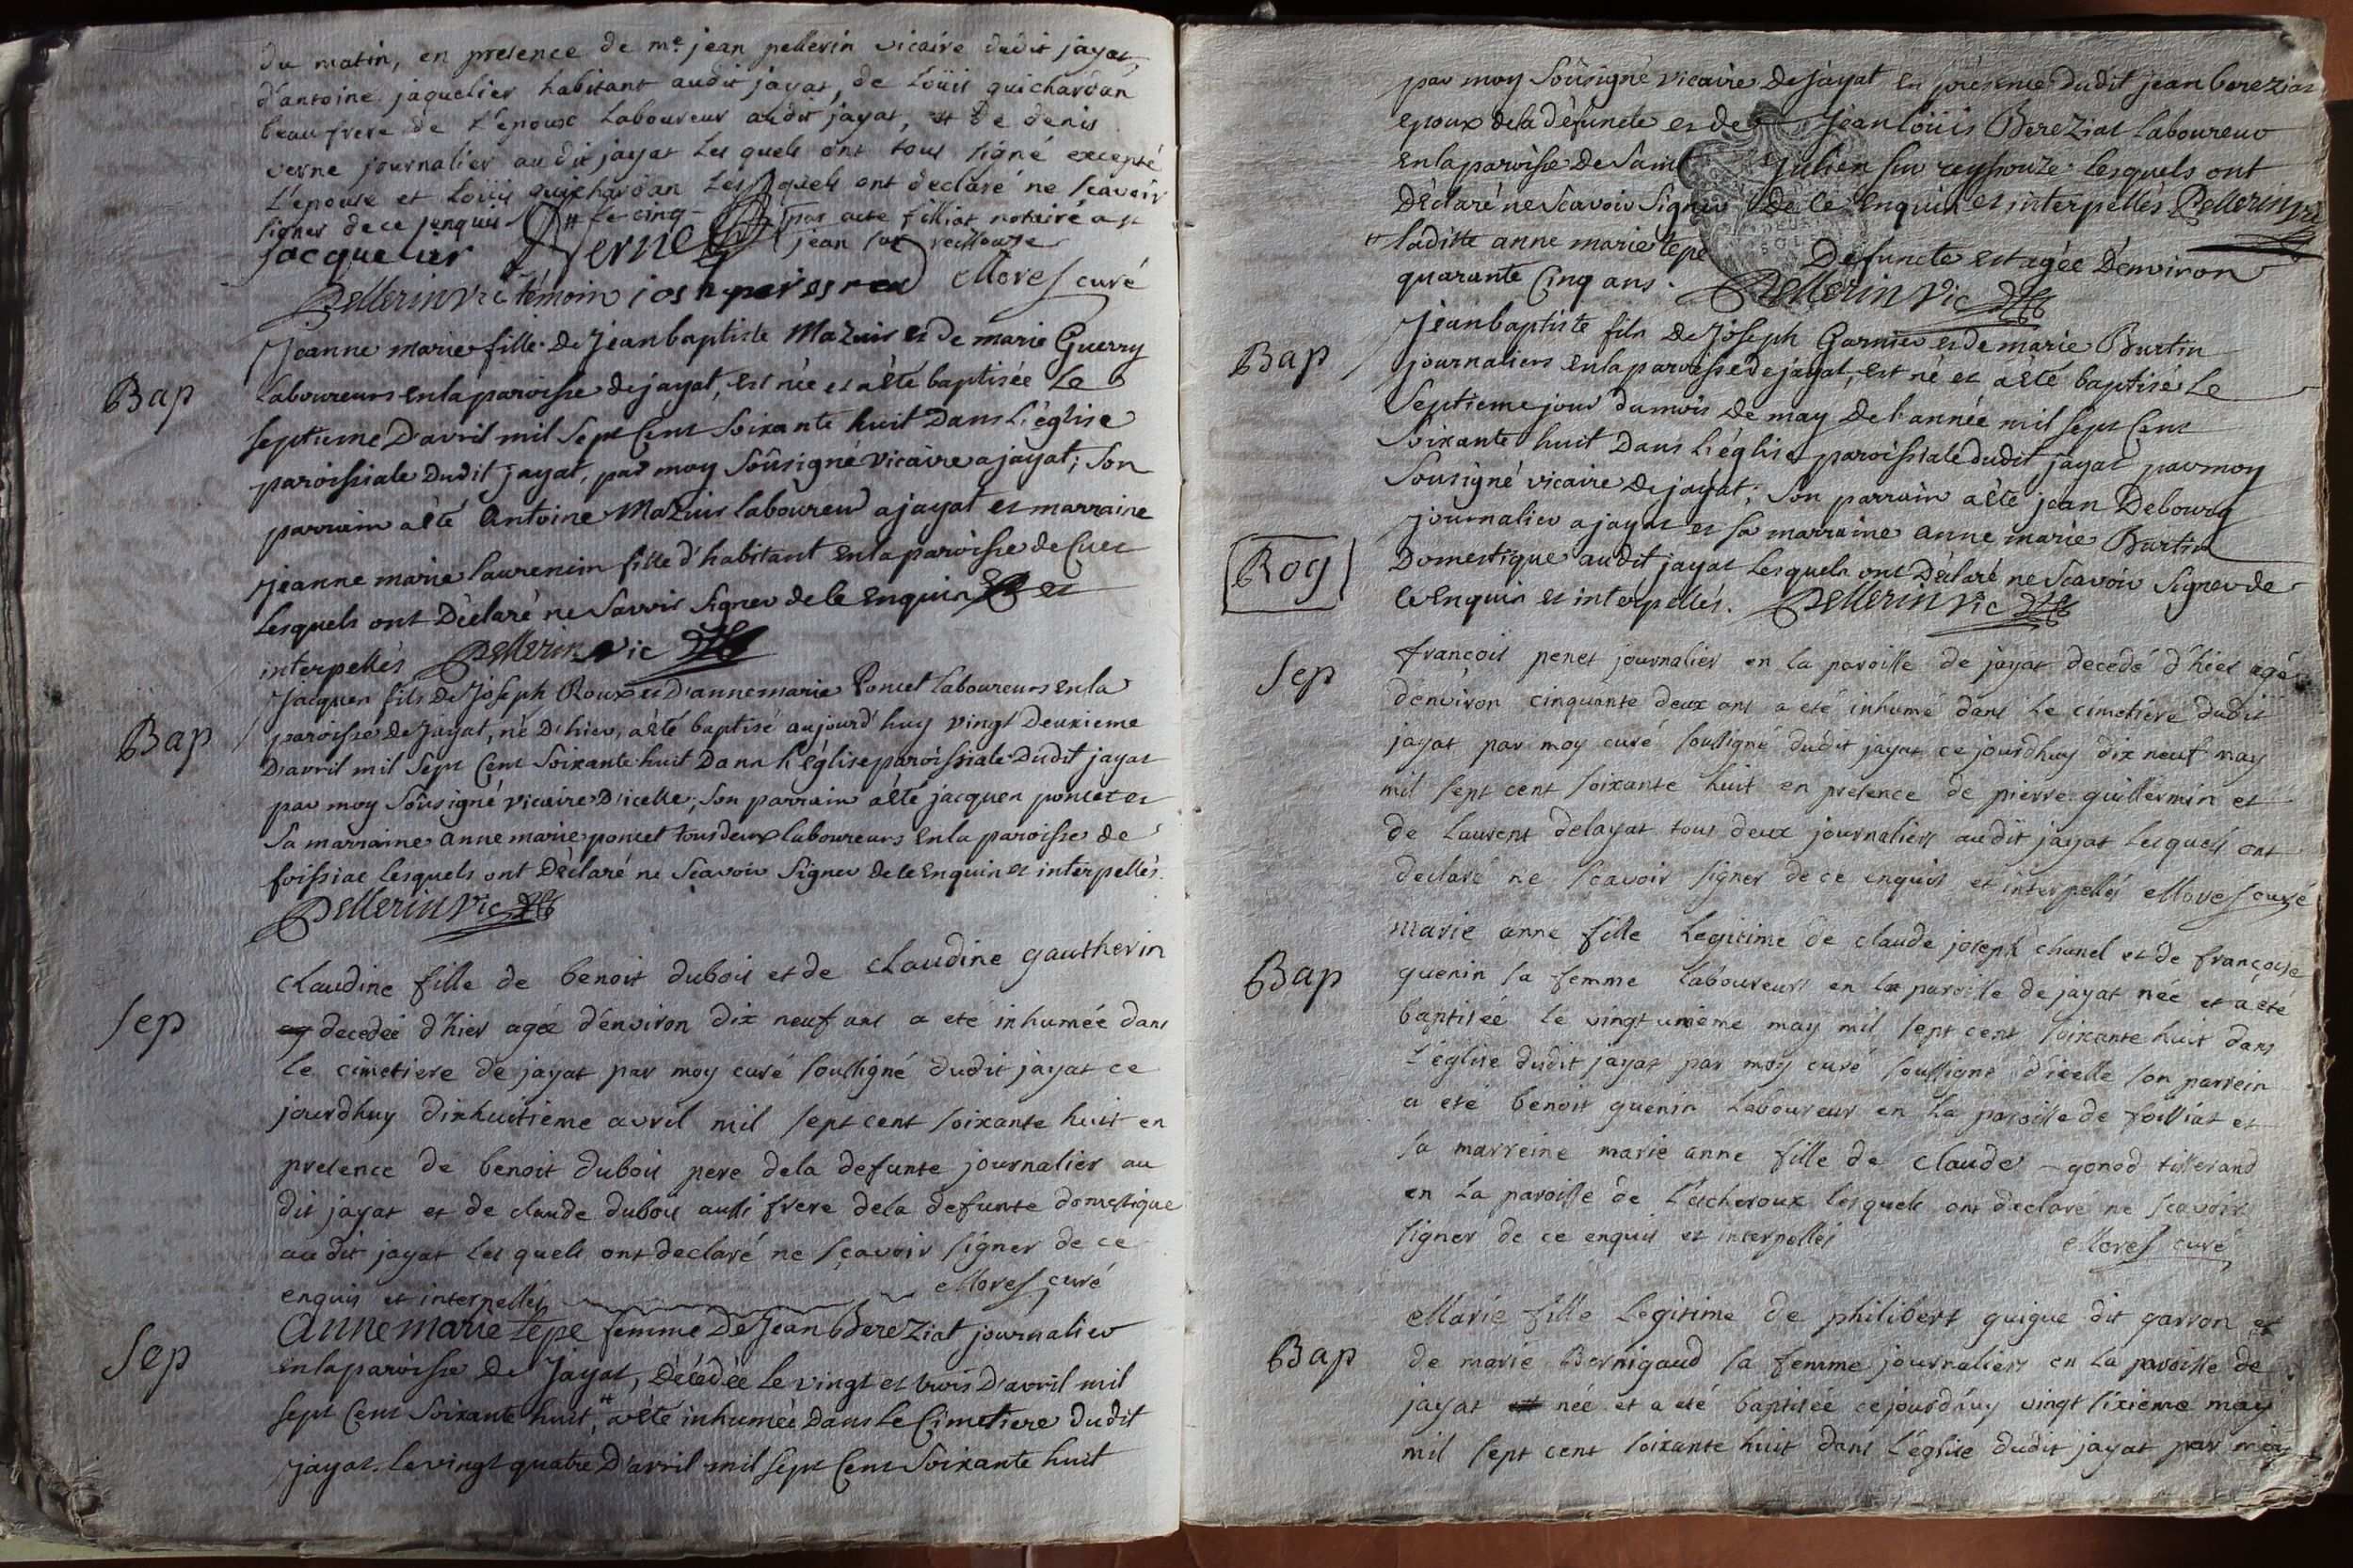 du matin, en presence de me jean pellerin vicaire dudit jayat,
d'antoine jaquelier habitant audit jayat, de Loüis guichardan
beau frere de L'epouse Laboureur audit jayat, et de denis
verne journalier audit jayat Lesquels ont tous signé excepté
L'epouse et Loüis guichardan Lesquels ont declaré ne scavoir
signer de ce enquis # Le cinq par acte filliat notaire a st
jean sur reissouse
jacquelier Verne
Pellerin vic temoin Mores curé
Bap
Jeanne marie fille de Jean baptiste Mazuir et de marie Guerry
Laboureurs en la paroisse de jayat, est née et a été baptisée Le
septieme D'avril mil sept Cent soixante huit Dans L'église
paroissiale Dudit jayat, par moy soûsigné vicaire a jayat; son
parrain a été Antoine Mazuir laboureur a jayat et marraine
jeanne marie laurenin fille d'habitant en la paroisse de Cuet
Lesquels ont Déclaré ne savoir signer de ce enquis et
interpellés Pellerin vic
Bap
Jacques fils De Joseph Roux et D'anne marie Poncet Laboureurs en la
paroisse de Jayat, né D'hier, a été baptisé aujourd'huy vingt Deuxieme
D'avril mil sept Cent soixante huit Dans L'église paroissiale Dudit jayat
par moy soûsigné vicaire D'icelle; son parrain a été jacques poncet et
sa marraine anne marie poncet tous deux laboureurs en la paroisse de
foissiac lesquels ont Déclaré ne scavoir signer de ce enquis et interpellés.
Pellerin vic
Sep
Claudine fille de benoit dubois et de claudine gautherin
decedée d'hier agée d'environ dix neuf ans a eté inhumée dans
Le cimetiere de jayat par moy curé soussigné dudit jayat ce
jourdhuy dixhuitieme avril mil sept cent soixante huit en
presence de benoit dubois pere de la defunte journalier au
dit jayat et de claude dubois aussi frere de la defunte domestique
audit jayat Lesquels ont declaré ne sçavoir signer de ce
enquis et interpellés Mores curé
Sep
Anne marie tepe femme De Jean Bereziat journalier
en la paroisse De Jayat, Décédée Le vingt et trois D'avril mil
sept Cent soixante huit, # a été inhumée Dans Le Cimetiere Dudit
jayat. Le vingt quatre D'avril mil sept Cent soixante huit
par moy soûsigné vicaire De jayat en présence Dudit jean bereziat
epoux de la défuncte et de Jean loüis Bereziat Laboureur
en la paroisse De saint Julien sur reyssouze Lesquels ont
Déclaré ne scavoir signer De ce enquis et interpellés Pellerin vic
# laditte anne marie tepe Defuncte est agée D'environ
quarante Cinq ans. Pellerin vic
Bap
Jean baptiste fils De Joseph Garnier et de marie Burtin
journaliers en la paroisse de jayat, est né et a été baptisé Le
septieme jour du mois de may De l'année mil sept Cent
soixante huit Dans L'église paroissiale dudit jayat par moy
sousigné vicaire De jayat; son parrain a été jean Debourg
journalier a jayat et sa marraine anne marie Burtin
Rog
Domestique audit jayat Lesquels ont Déclaré ne scavoir signer de
ce enquis et interpellés. Pellerin vic
Sep
françois penet journalier en la paroisse de jayat decedé d'hier agé
d'environ cinquante deux ans a eté inhumé dans Le cimetiere dudit
jayat par moy curé soussigné dudit jayat ce jourdhuy dix neuf may
mil sept cent soixante huit en presence de pierre guillermin et
de Laurent delayat tous deux journaliers audit jayat Lesquels ont
declaré ne scavoir signer de ce enquis et interpellés Mores curé
Bap
Marie anne fille Legitime de claude joseph chanel et de françoise
guenin sa femme Laboureurs en la paroisse de jayat née et a eté
baptisée Le vingt unieme may mil sept cent soixante huit dans
L'église dudit jayat par moy curé soussigné d'icelle son parrein
a eté benoit guenin Laboureur en La paroisse de foissiat et
sa marreine marie anne fille de claude gonod tisserand
en La paroisse de L'escheroux lesquels ont declaré ne scavoir
signer de ce enquis et interpellés Mores curé
Bap
Marie fille Legitime de philibert guigue dit garron et
de marie Bernigaud sa femme journaliers en La paroisse de
jayat née et a eté baptisée cejourdhuy vingt sixieme may
mil sept cent soixante huit dans L'église dudit jayat par moy